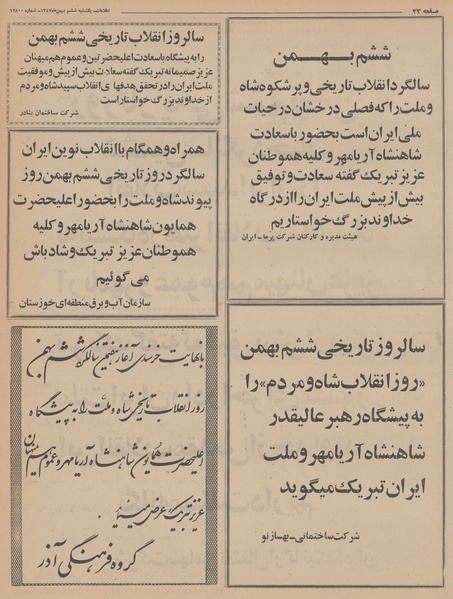 صفحه ۲۳
اطلاعات ـ یکشنبه ششم بهمن ۱۳۴۷ ـ شماره ۱۲۸۰۰
ششم بهمن
سالگرد انقلاب تاریخی و پرشکوه شاه
و ملت را که فصلی درخشان در حیات
ملی ایران است بحضور با سعادت
شاهنشاه آریامهر و کلیه هموطنان
عزیز تبریک گفته سعادت و توفیق
بیش از پیش ملت ایران را از درگاه
خداوند بزرگ خواستاریم
هیئت مدیره و کارکنان شرکت پرما ـ ایران
سالروز انقلاب تاریخی ششم بهمن
را به پیشگاه با سعادت اعلیحضرتین و عموم هم میهنان
عزیز صمیمانه تبریک گفته سعادت بیش از پیش و موفقیت
ملت ایران را در تحقق هدفهای انقلاب سپید شاه و مردم
از خداوند بزرگ خواستار است
شرکت ساختمان بنادر
همراه و همگام با انقلاب نوین ایران
سالگرد روز تاریخی ششم بهمن روز
پیوند شاه و ملت را بحضور اعلیحضرت
همایون شاهنشاه آریامهر و کلیه
هموطنان عزیز تبریک و شادباش
می گوئیم
سازمان آب و برق منطقه‌ای خوزستان
سالروز تاریخی ششم بهمن
«روز انقلاب شاه و مردم» را
به پیشگاه رهبر عالیقدر
شاهنشاه آریامهر و ملت
ایران تبریک میگوید
شرکت ساختمانی ـ بهساز نو
با نهایت خرسندی آغاز هفتمین سالگرد ششم بهمن
روز انقلاب تاریخی شاه و ملت را به پیشگاه
اعلیحضرت همایون شاهنشاه آریامهر و عموم هم میهنان
عزیز تبریک عرض مینماید.
گروه فرهنگی آذر